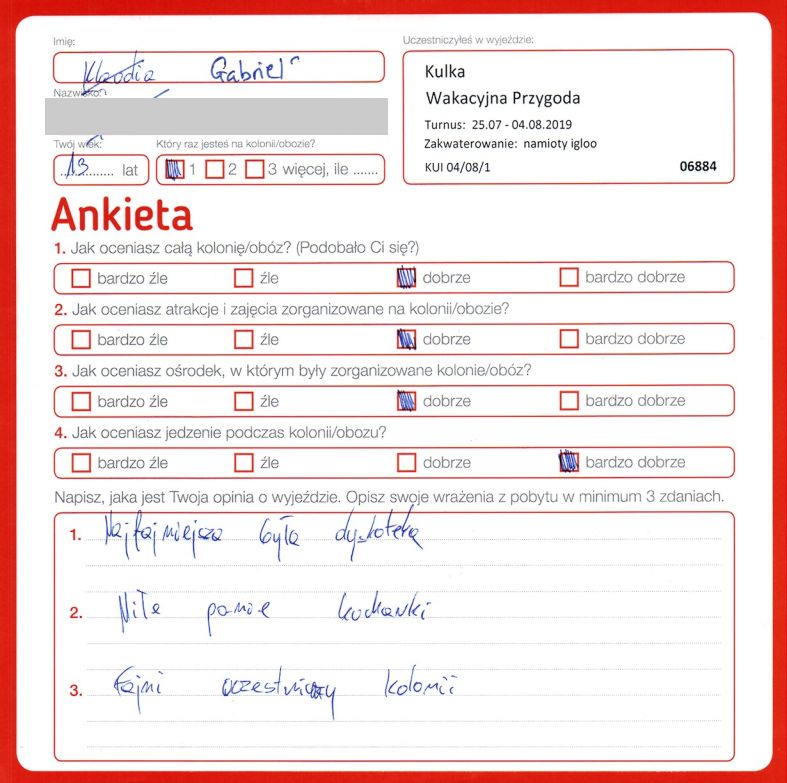 Imię:
Uczestniczyłeś w wyjeździe:
Klaudia Gabriel
Kulka
Nazwisko:
Wakacyjna Przygoda
Turnus: 25.07 - 04.08.2019
Twój wiek:
Który raz jesteś na kolonii/obozie?
Zakwaterowanie: namioty igloo
13 lat
1 2 3 więcej, ile .......
KUI 04/08/1 06884
Ankieta
1. Jak oceniasz całą kolonię/obóz? (Podobało Ci się?)
bardzo źle źle dobrze bardzo dobrze
2. Jak oceniasz atrakcje i zajęcia zorganizowane na kolonii/obozie?
bardzo źle źle dobrze bardzo dobrze
3. Jak oceniasz ośrodek, w którym były zorganizowane kolonie/obóz?
bardzo źle źle dobrze bardzo dobrze
4. Jak oceniasz jedzenie podczas kolonii/obozu?
bardzo źle źle dobrze bardzo dobrze
Napisz, jaka jest Twoja opinia o wyjeździe. Opisz swoje wrażenia z pobytu w minimum 3 zdaniach.
1. Najfajniejsza była dyskoteka
2. Miłe panie kucharki
3. Fajni uczestnicy kolonii